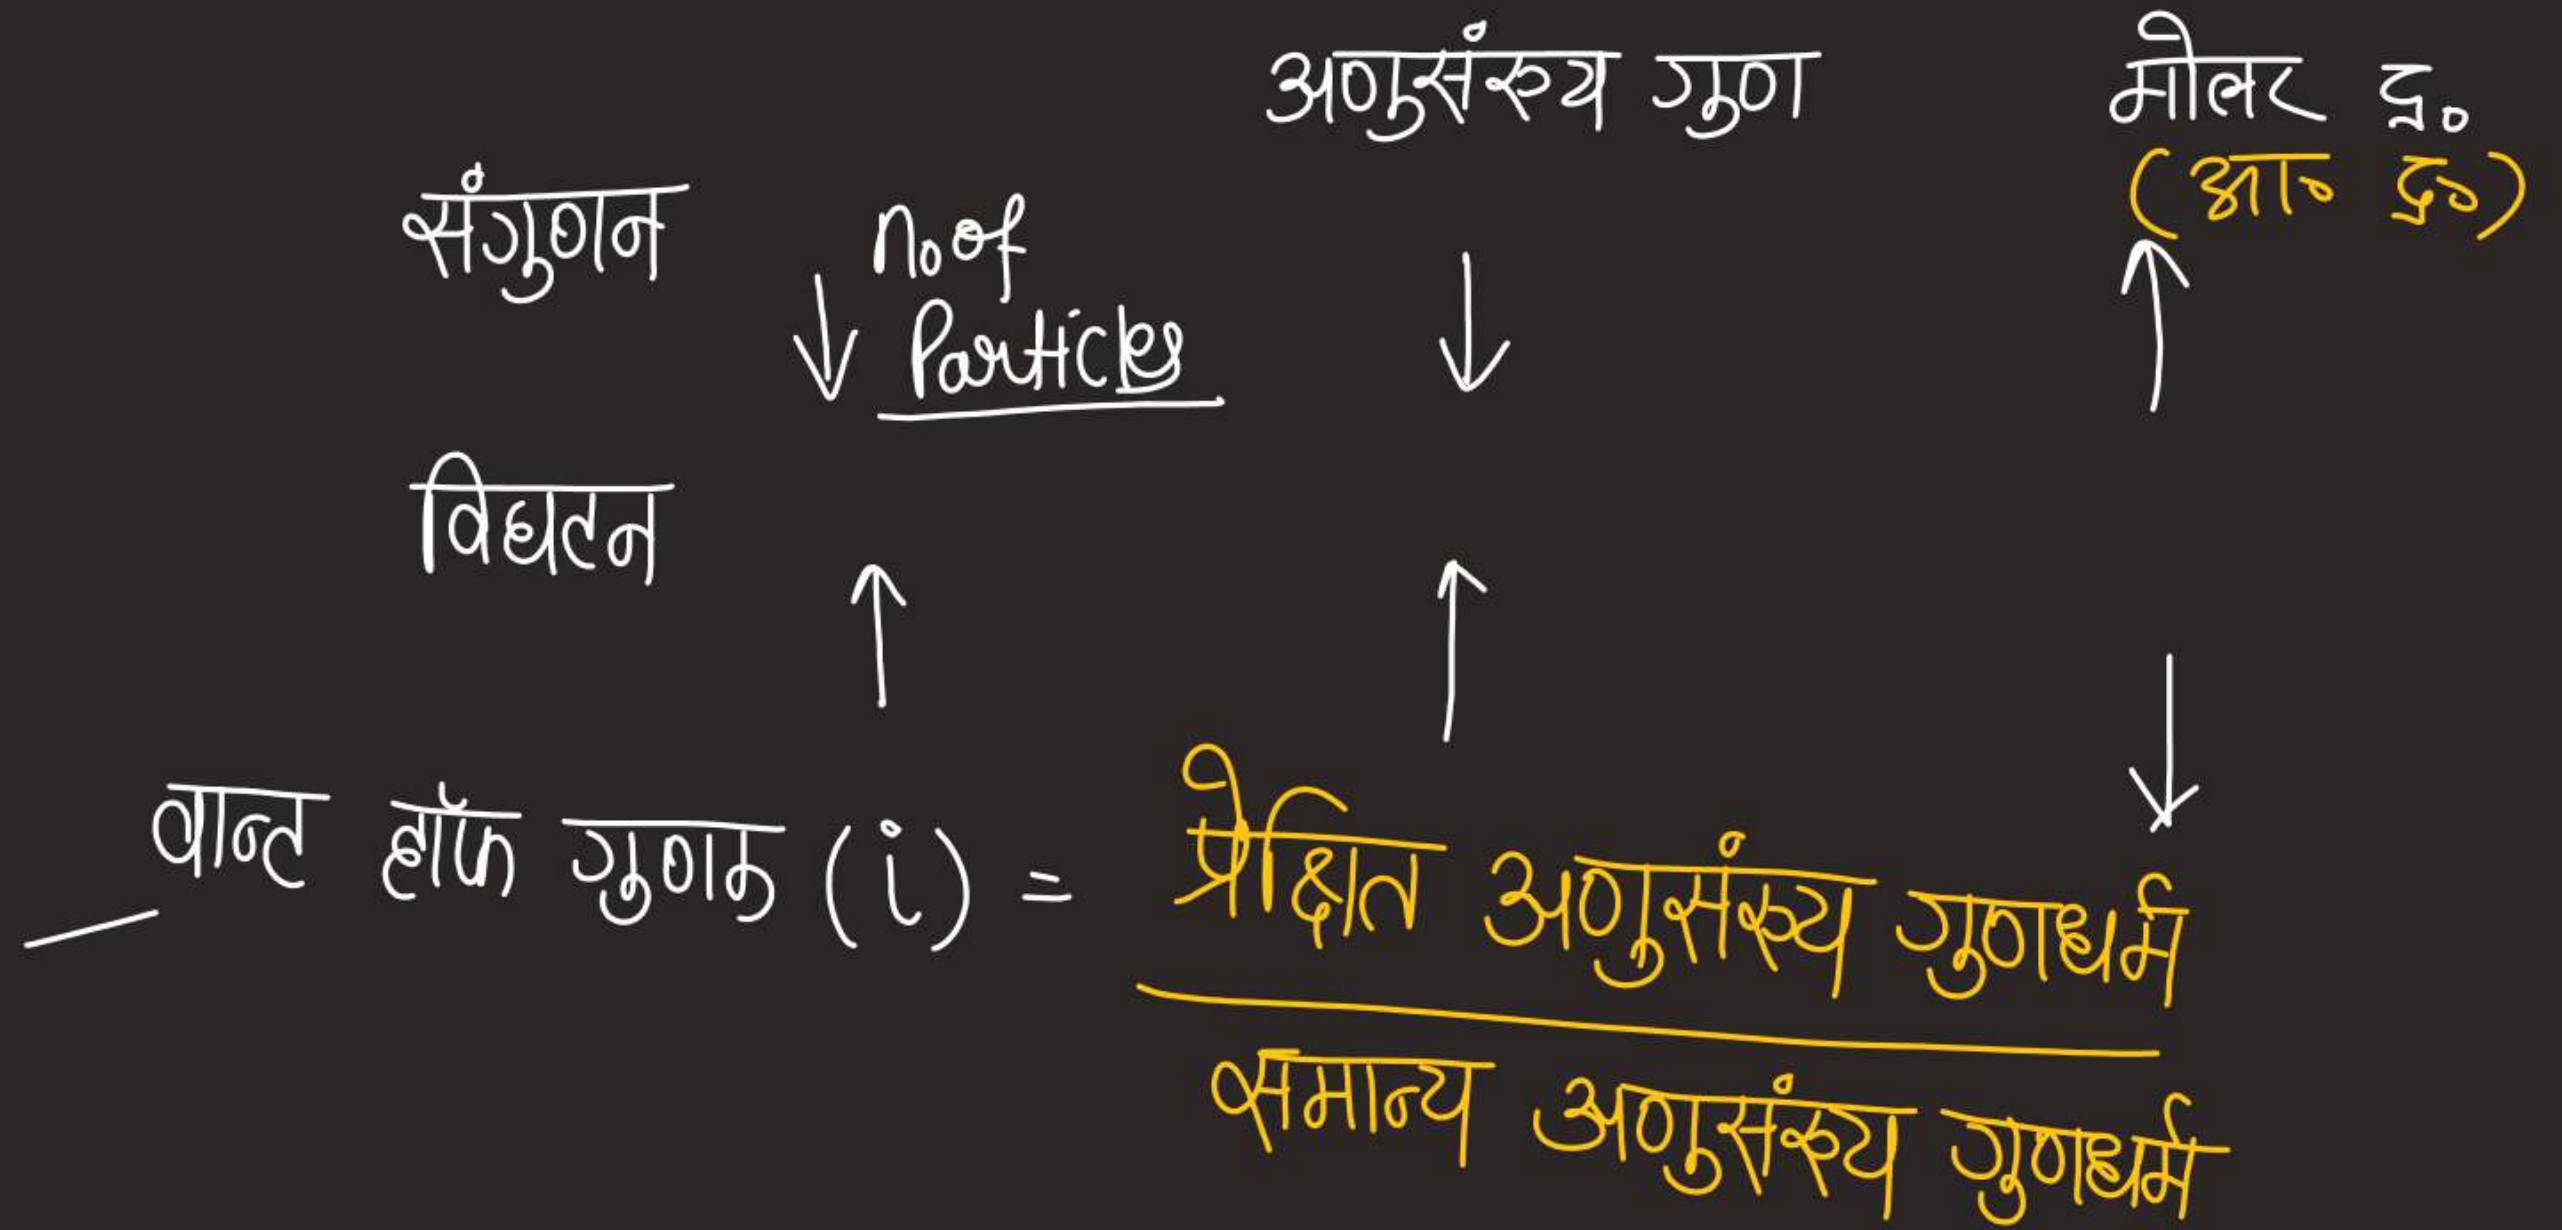 अणुसंख्य गुण मोलर द्र०
(आ० द्र०)
संगुणन ↓ No of Particles ↓ ↑
विघटन ↑ ↑ ↓
वान्ट हॉफ गुणक (i) = प्रेक्षित अणुसंख्य गुणधर्म
समान्य अणुसंख्य गुणधर्म